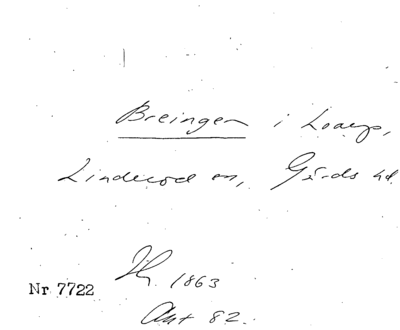 Breingen i Loarp,
Linderöd sn, Gärds hd.
Nr 7722 Jh. 1863
Akt 82.